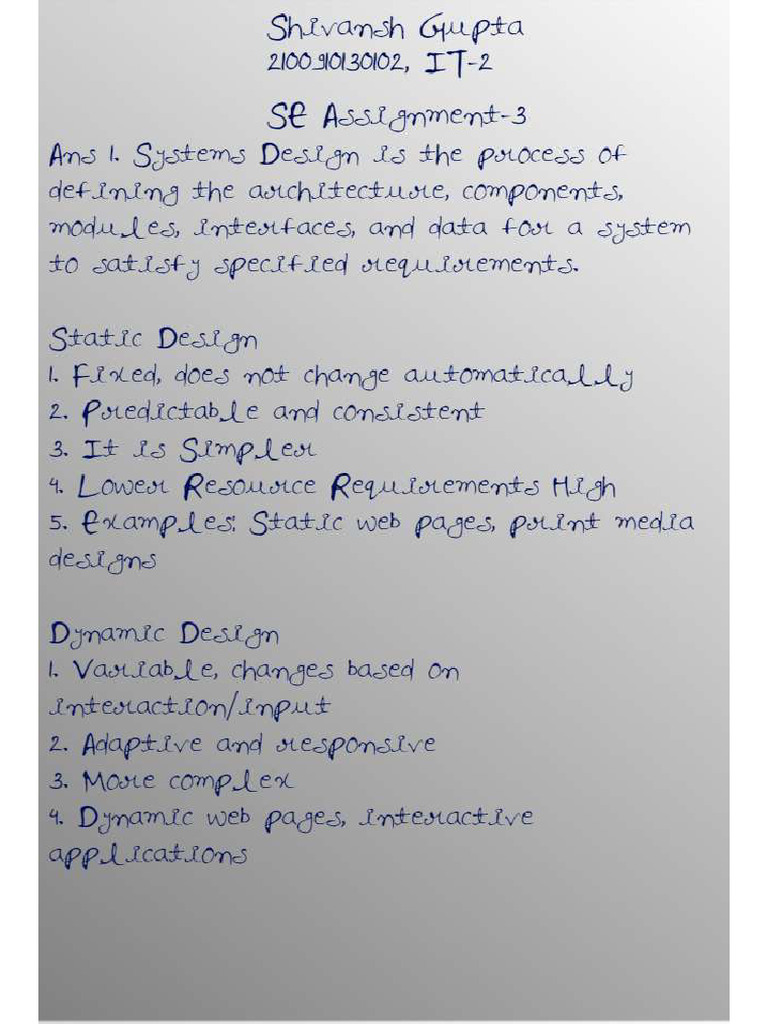 Shivansh Gupta
2100910130102, IT-2
SE Assignment-3
Ans 1. Systems Design is the process of
defining the architecture, components,
modules, interfaces, and data for a system
to satisfy specified requirements.
Static Design
1. Fixed, does not change automatically
2. Predictable and consistent
3. It is Simpler
4. Lower Resource Requirements High
5. Examples: Static web pages, print media
designs
Dynamic Design
1. Variable, changes based on
interaction/input
2. Adaptive and responsive
3. More complex
4. Dynamic web pages, interactive
applications